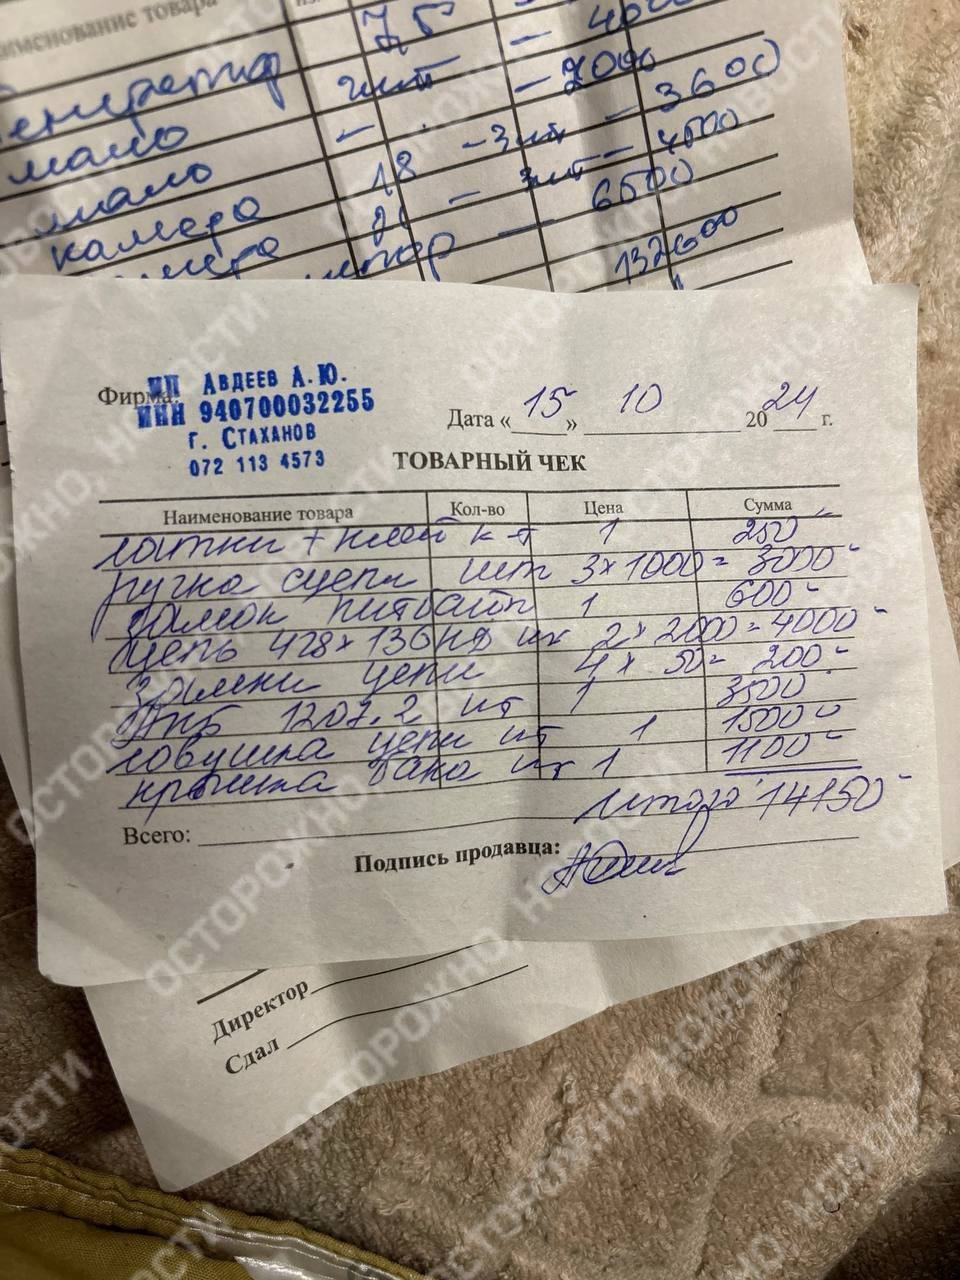 аименование товара
75 - 40
генератор
шт - 2000
масло
масло - . - 3600
камера 18 - 3шт - 4500
камера - 3шт - 6500
132600
Фирма: ИП АВДЕЕВ А.Ю.
ИНН 940700032255
г. СТАХАНОВ
072 113 4573
Дата «15» 10 2024 г.
ТОВАРНЫЙ ЧЕК
Наименование товара Кол-во Цена Сумма
латки + клей к-т 1 250-
ручка сцепл шт 3×1000= 3000-
замок питбайк 1 600-
цепь 428×136 шт 2×2000= 4000-
замки цепи 4×50= 200-
1207.2 шт 1 3500-
ловушка цепи шт 1 1500-
крышка бака шт 1 1100-
Итого: 14150-
Всего:
Подпись продавца:
Директор
Сдал
ОСТОРОЖНО, НОВОСТИ